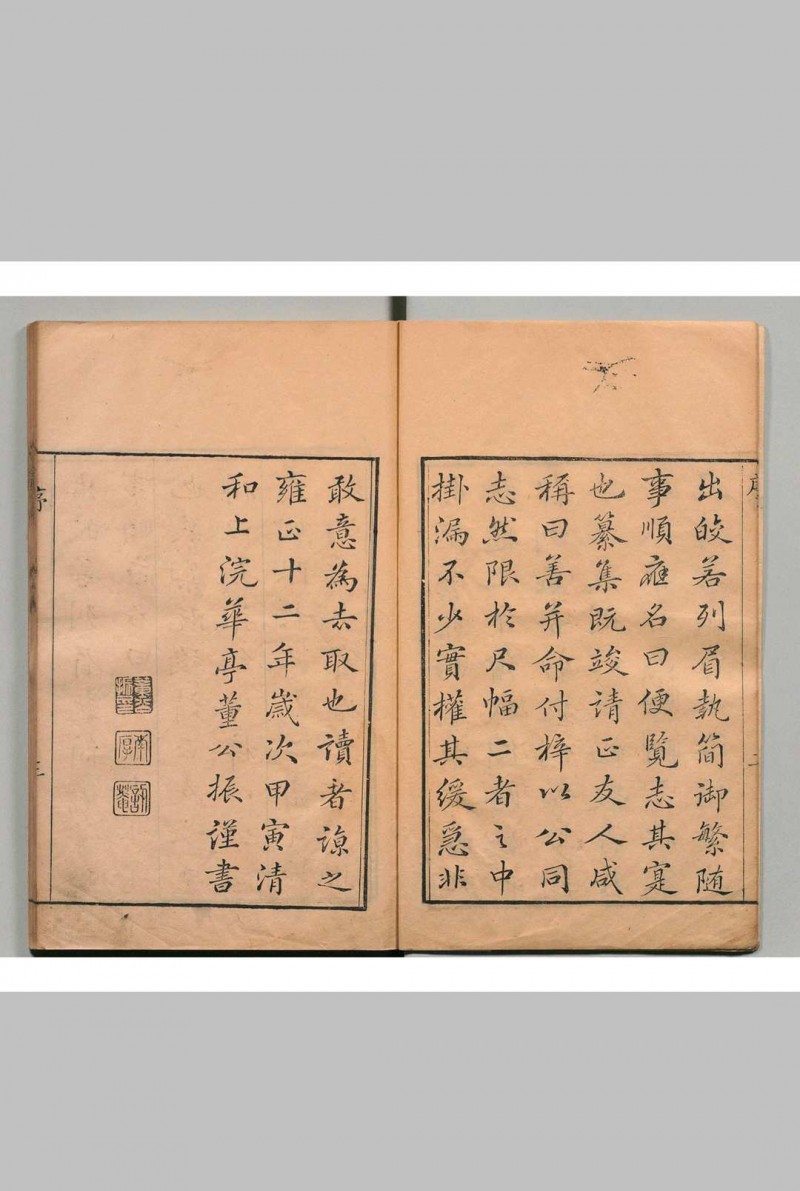 出皎若列眉執簡御繁随
事順應名曰便覽志其寔
也纂集既竣請正友人咸
稱曰善并命付梓以公同
志然限於尺幅二者之中
掛漏不少實權其緩急非
敢意為去取也讀者諒之
雍正十二年歲次甲寅清
和上浣華亭董公振謹書
序
三
二